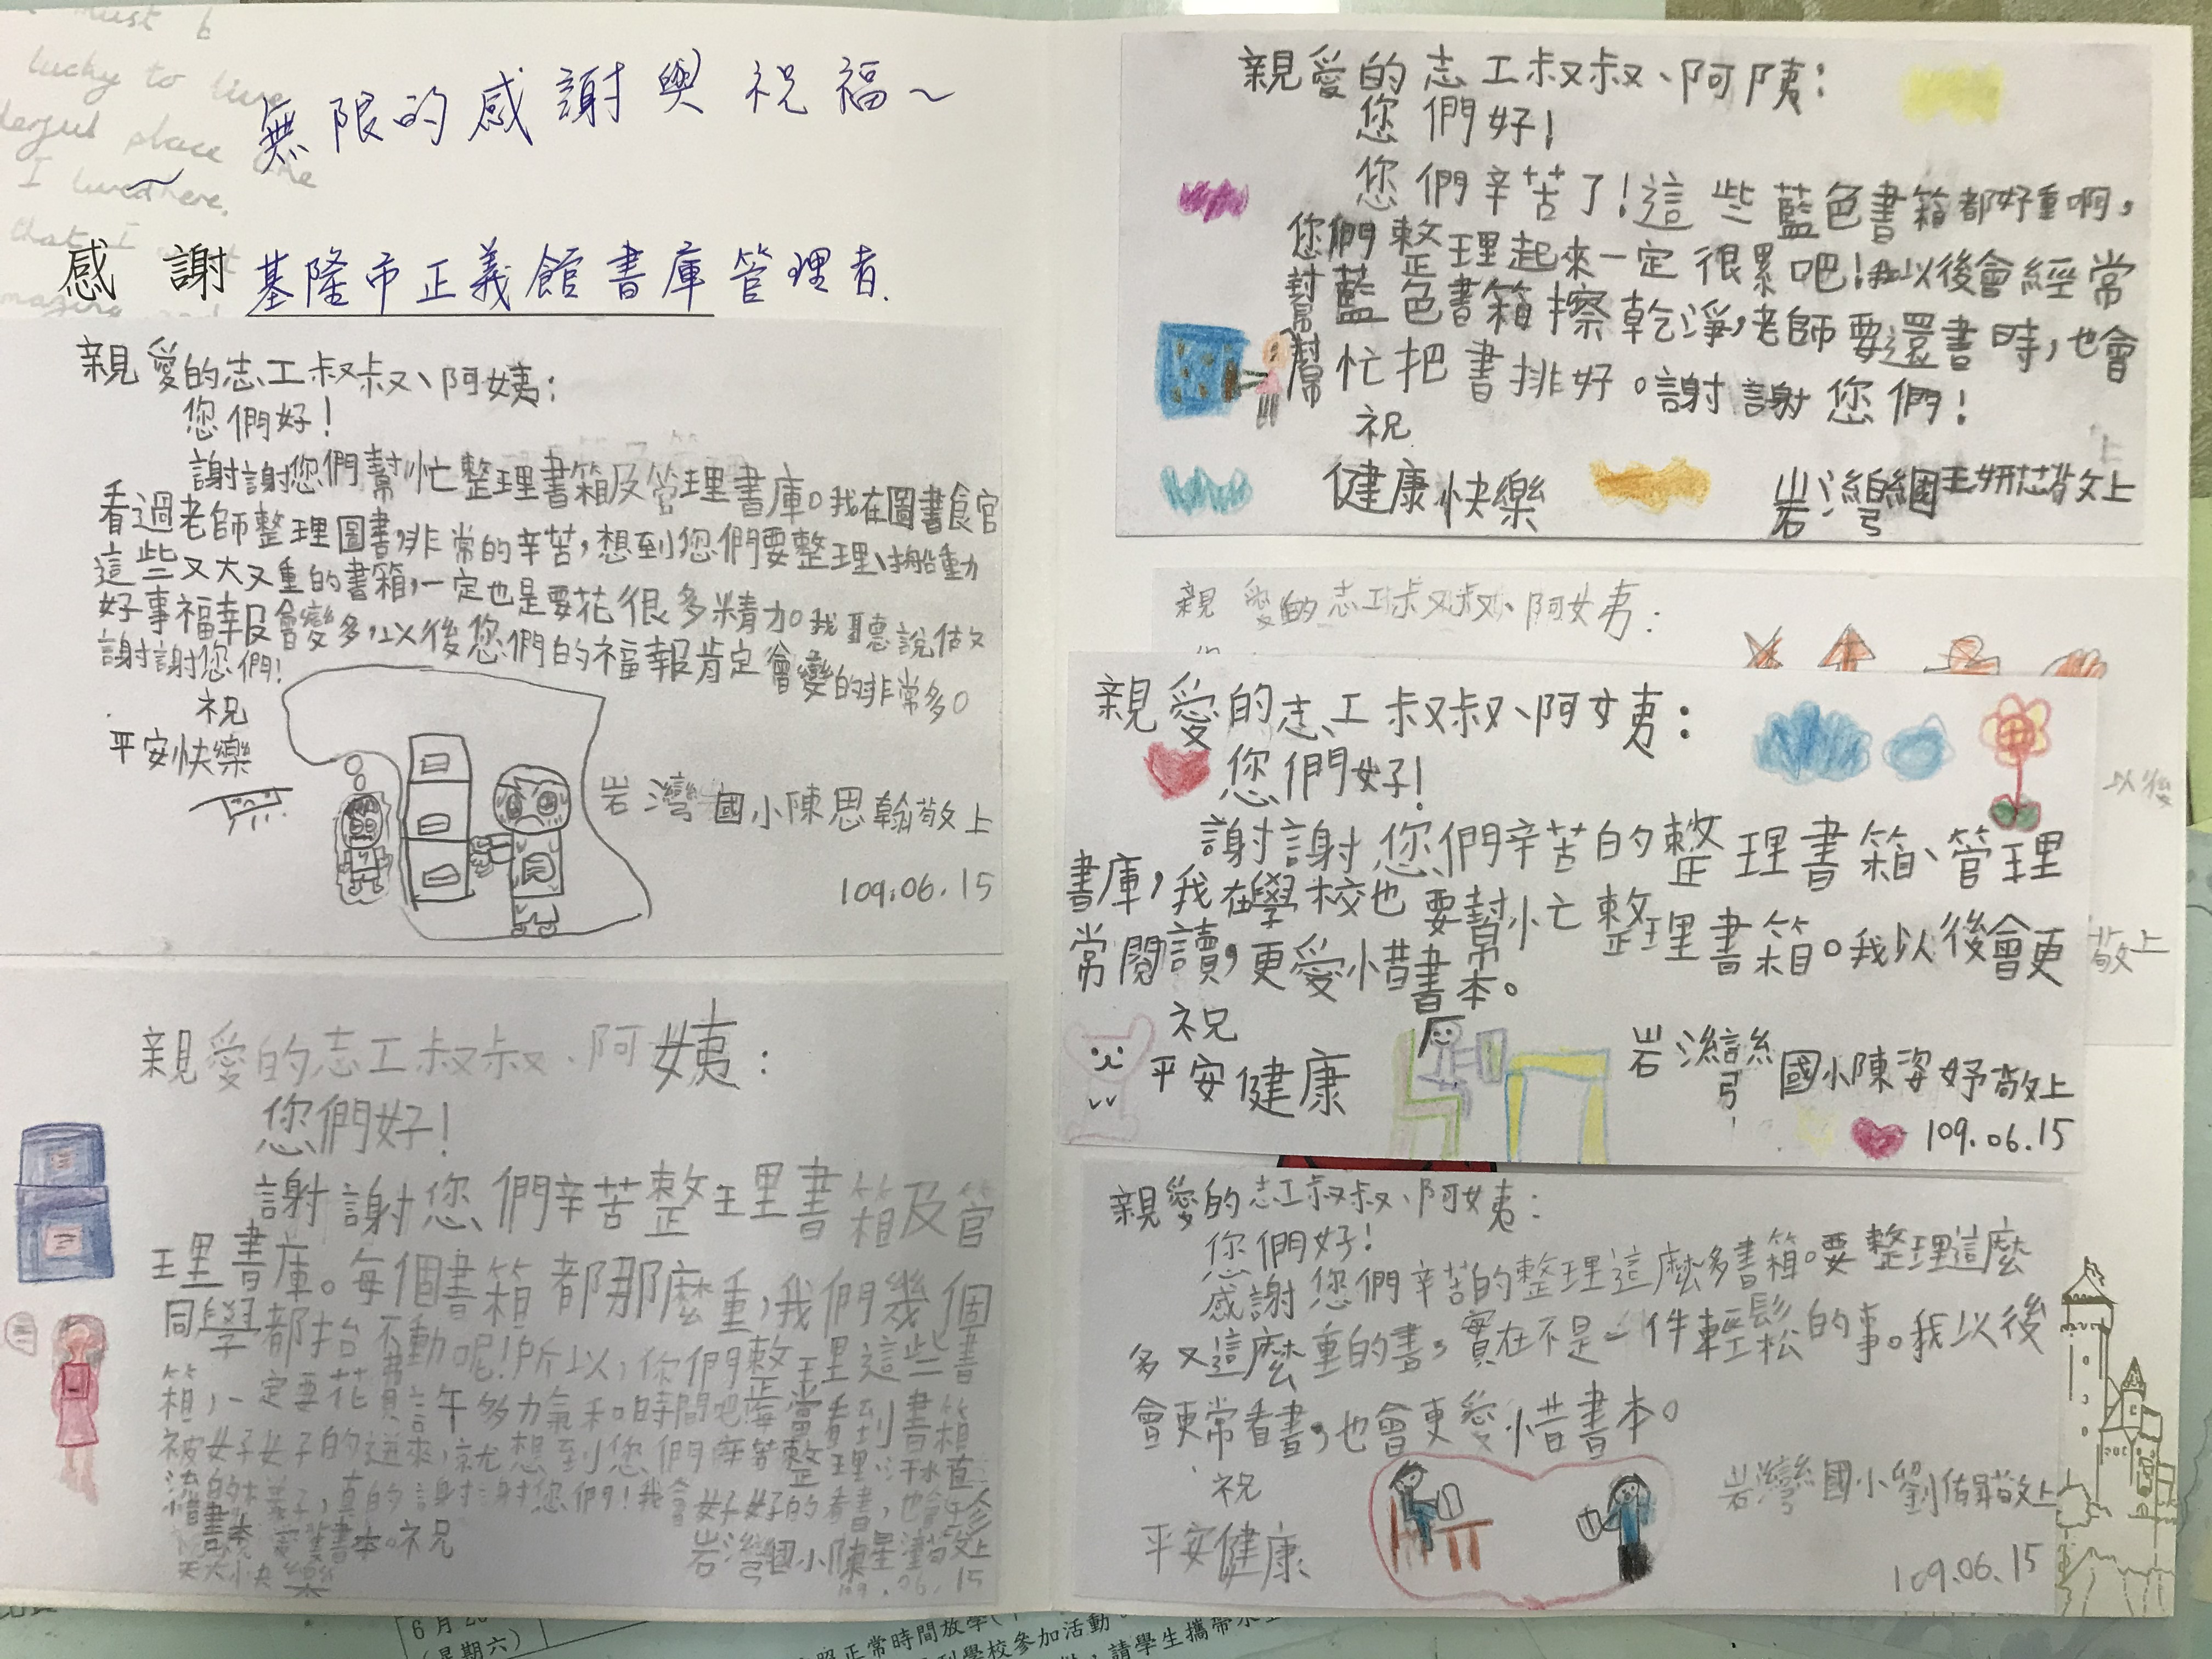 無限的感謝與祝福~
感 謝 基隆市正義館書庫管理者.
親愛的志工叔叔、阿姨:
您們好!
謝謝您們幫忙整理書箱及管理書庫。我在圖書館
看過老師整理圖書,非常的辛苦,想到您們要整理、搬動
這些又大又重的書箱,一定也是要花很多精力。我聽說做
好事福報會變多,以後您們的福報肯定會變的非常多。
謝謝您們!
祝
平安快樂
岩灣國小陳思翰敬上
109.06.15
親愛的志工叔叔、阿姨:
您們好!
謝謝您們辛苦整理書箱及管
理書庫。每個書箱都那麼重,我們幾個
同學都抬不動呢!所以,你們整理這些書
箱,一定要花費許多力氣和時間吧!每當看到書箱
被好好的送來,就想到您們辛苦整理
流的樣子,真的謝謝您們!我會好好的看書,也會珍
惜書本
祝
天天快樂
岩灣國小陳星 敬上
109.06.15
親愛的志工叔叔、阿姨:
您們好!
您們辛苦了!這些藍色書箱都好重啊,
您們整理起來一定很累吧!我以後會經常
幫藍色書箱擦乾淨,老師要還書時,也會
幫忙把書排好。謝謝您們!
祝
健康快樂
岩灣國 王妍 敬上
親愛的志工叔叔、阿姨:
以後
敬上
親愛的志工叔叔、阿姨:
您們好!
謝謝您們辛苦的整理書箱、管理
書庫,我在學校也要幫忙整理書箱。我以後會更
常閱讀,更愛惜書本。
祝
平安健康
岩灣國小陳姿妤敬上
109.06.15
親愛的志工叔叔、阿姨:
您們好!
感謝您們辛苦的整理這麼多書箱。要整理這麼
多又這麼重的書,實在不是一件輕鬆的事。我以後
會更常看書,也會更愛惜書本。
祝
平安健康
岩灣國小劉 敬上
109.06.15
6月20
(星期六)
照正常時間放學
到學校參加活動
請學生攜帶水